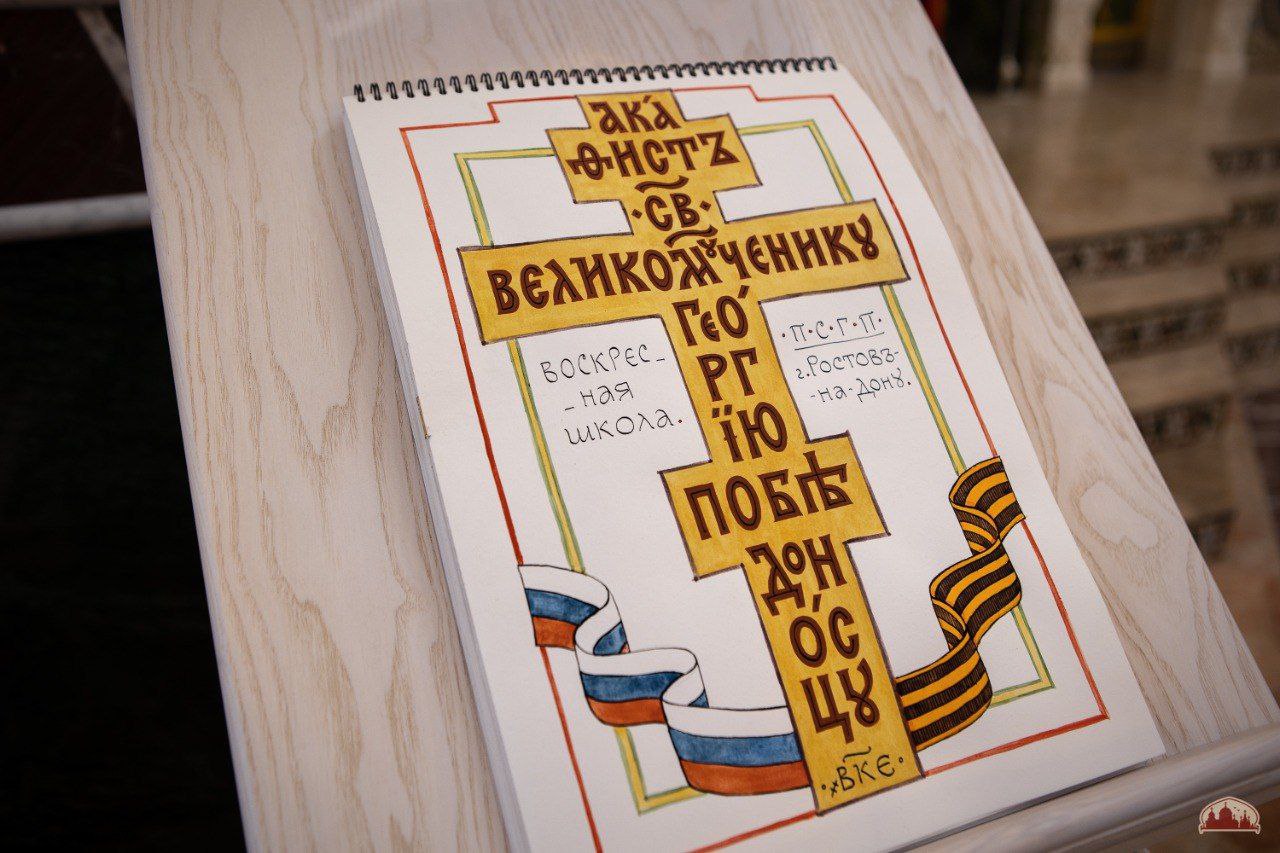 АКА́
ѲИСТЪ
·С҃В·
ВЕЛИКОМꙋ҃ЧЕНИКꙊ
ГЕО́
РГ
ІЮ
ПОБѢ
ДОН
О́С
ЦꙊ
·҂В҃КЄ·
ВОСКРЕС_
_НАЯ
ШКОЛА.
·П·С·Г·П·
г. Ростовъ-
-на-Дону.